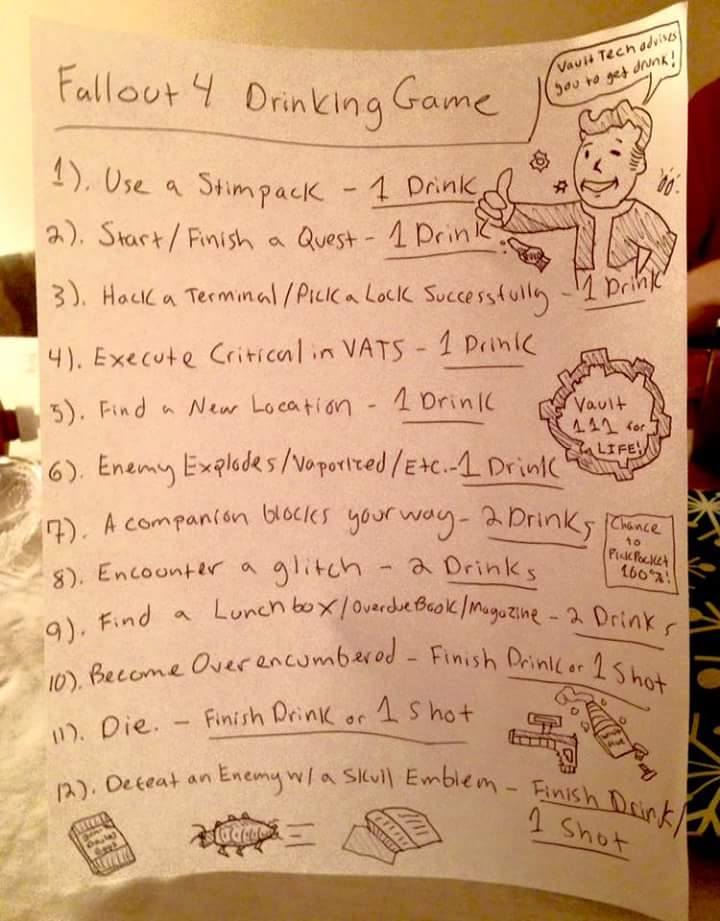 Vault Tech advises
you to get drunk!
Fallout 4 Drinking Game
1). Use a Stimpack - 1 Drink
2). Start/Finish a Quest - 1 Drink
3). Hack a Terminal/Pick a Lock Successfully - 1 Drink
4). Execute Critical in VATS - 1 Drink
5). Find a New Location - 1 Drink
Vault
111 for
LIFE!
6). Enemy Explodes/Vaporized/Etc. - 1 Drink
7). A companion blocks your way - 2 Drinks
Chance
to
PickPocket
100%!
8). Encounter a glitch - 2 Drinks
9). Find a Lunchbox/OverdueBook/Magazine - 2 Drinks
10). Become Overencumbered - Finish Drink or 1 Shot
11). Die. - Finish Drink or 1 Shot
12). Defeat an Enemy w/ a Skull Emblem - Finish Drink/
1 Shot